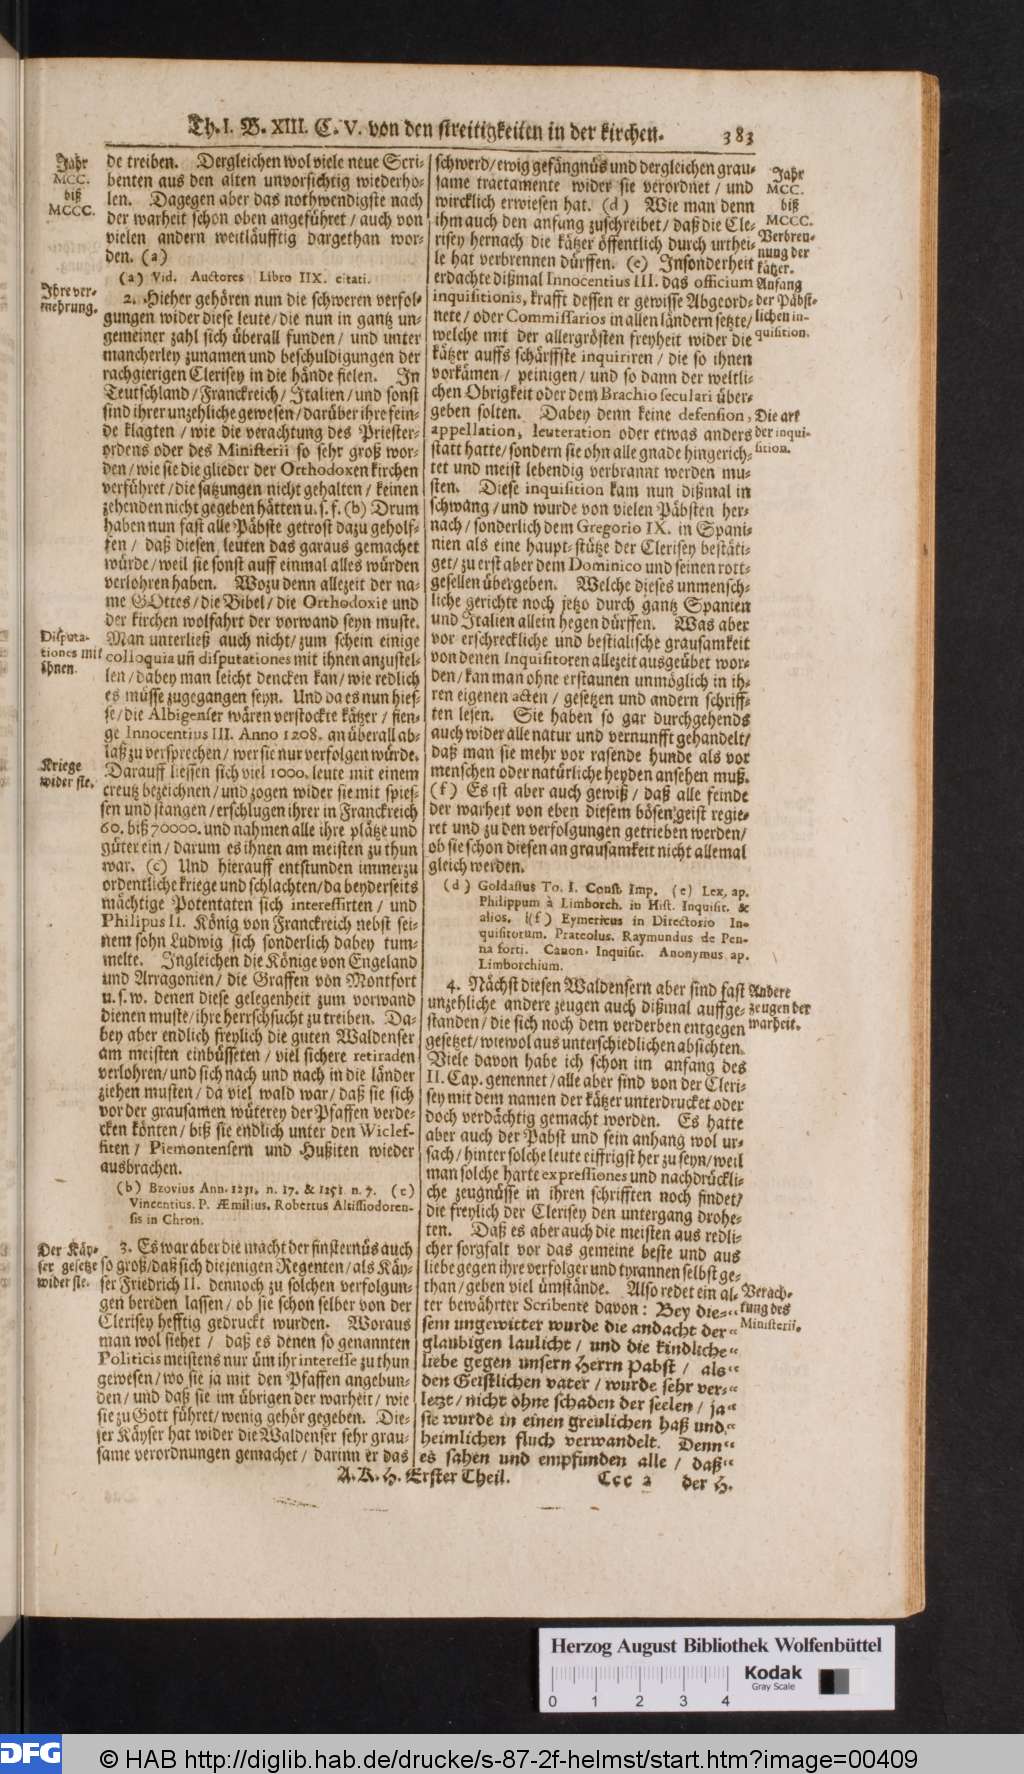 Th. I. B. XIII. C. V. von den streitigkeiten in der kirchen. 383
Jahr
MCC.
biß
MCCC.
de treiben. Dergleichen wol viele neue Scri-
benten aus den alten unvorsichtig wiederho-
len. Dagegen aber das nothwendigste nach
der warheit schon oben angeführet / auch von
vielen andern weitläufftig dargethan wor-
den. (a)
(a) Vid. Auctores Libro IIX. citati.
Ihre ver-
mehrung.
2. Hieher gehören nun die schweren verfol-
gungen wider diese leute / die nun in gantz un-
gemeiner zahl sich überall funden / und unter
mancherley zunamen und beschuldigungen der
rachgierigen Clerisey in die hände fielen. In
Teutschland / Franckreich / Italien / und sonst
sind ihrer unzehliche gewesen / darüber ihre fein-
de klagten / wie die verachtung des Priester-
ordens oder des Ministerii so sehr groß wor-
den / wie sie die glieder der Orthodoxen kirchen
verführet / die satzungen nicht gehalten / keinen
zehenden nicht gegeben hätten u. s. f. (b) Drum
haben nun fast alle Päbste getrost dazu geholf-
fen / daß diesen leuten das garaus gemachet
würde / weil sie sonst auff einmal alles würden
verlohren haben. Wozu denn allezeit der na-
me GOttes / die Bibel / die Orthodoxie und
der kirchen wolfahrt der vorwand seyn muste.
Disputa-
tiones mit
ihnen.
Man unterließ auch nicht / zum schein einige
colloquia uñ disputationes mit ihnen anzustel-
len / dabey man leicht dencken kan / wie redlich
es müsse zugegangen seyn. Und da es nun hies-
se / die Albigenser wären verstockte kätzer / fien-
ge Innocentius III. Anno 1208. an überall ab-
laß zu versprechen / wer sie nur verfolgen würde.
Kriege
wider sie.
Darauff liessen sich viel 1000. leute mit einem
creutz bezeichnen / und zogen wider sie mit spies-
sen und stangen / erschlugen ihrer in Franckreich
60. biß 70000. und nahmen alle ihre plätze und
güter ein / darum es ihnen am meisten zu thun
war. (c) Und hierauff entstunden immerzu
ordentliche kriege und schlachten / da beyderseits
mächtige Potentaten sich interessirten / und
Philipus II. König von Franckreich nebst sei-
nem sohn Ludwig sich sonderlich dabey tum-
melte. Ingleichen die Könige von Engeland
und Arragonien / die Graffen von Montfort
u. s. w. denen diese gelegenheit zum vorwand
dienen muste / ihre herrschsucht zu treiben. Da-
bey aber endlich freylich die guten Waldenser
am meisten einbüsseten / viel sichere retiraden
verlohren / und sich nach und nach in die länder
ziehen musten / da viel wald war / daß sie sich
vor der grausamen wüterey der Pfaffen verde-
cken könten / biß sie endlich unter den Wiclef-
fiten / Piemontensern und Hußiten wieder
ausbrachen.
(b) Bzovius Ann. 1231. n. 17. & 1251. n. 7. (c)
Vincentius. P. Æmilius. Robertus Altissiodoren-
sis in Chron.
Der Käy-
ser gesetze
wider sie.
3. Es war aber die macht der finsternüs auch
so groß / daß sich diejenigen Regenten / als Käy-
ser Friedrich II. dennoch zu solchen verfolgun-
gen bereden lassen / ob sie schon selber von der
Clerisey hefftig gedruckt wurden. Woraus
man wol siehet / daß es denen so genannten
Politicis meistens nur üm ihr interesse zu thun
gewesen / wo sie ja mit den Pfaffen angebun-
den / und daß sie im übrigen der warheit / wie
sie zu Gott führet / wenig gehör gegeben. Die-
ser Käyser hat wider die Waldenser sehr grau-
same verordnungen gemachet / darinn er das
schwerd / ewig gefängnüs und dergleichen grau-
same tractamente wider sie verordnet / und
wircklich erwiesen hat. (d) Wie man denn
ihm auch den anfang zuschreibet / daß die Cle-
risey hernach die kätzer öffentlich durch urthei-
le hat verbrennen dürffen. (e) Insonderheit
erdachte dißmal Innocentius III. das officium
inquisitionis, krafft dessen er gewisse Abgeord-
nete / oder Commissarios in allen ländern setzte /
welche mit der allergrösten freyheit wider die
kätzer auffs schärffste inquiriren / die so ihnen
vorkämen / peinigen / und so dann der weltli-
chen Obrigkeit oder dem Brachio seculari über-
geben solten. Dabey denn keine defension,
appellation, leuteration oder etwas anders
statt hatte / sondern sie ohn alle gnade hingerich-
tet und meist lebendig verbrannt werden mu-
sten. Diese inquisition kam nun dißmal in
schwang / und wurde von vielen Päbsten her-
nach / sonderlich dem Gregorio IX. in Spani-
nien als eine haupt-stütze der Clerisey bestäti-
get / zu erst aber dem Dominico und seinen rott-
gesellen übergeben. Welche dieses unmensch-
liche gerichte noch jetzo durch gantz Spanien
und Italien allein hegen dürffen. Was aber
vor erschreckliche und bestialische grausamkeit
von denen Inquisitoren allezeit ausgeübet wor-
den / kan man ohne erstaunen unmöglich in ih-
ren eigenen acten / gesetzen und andern schriff-
ten lesen. Sie haben so gar durchgehends
auch wider alle natur und vernunfft gehandelt /
daß man sie mehr vor rasende hunde als vor
menschen oder natürliche heyden ansehen muß.
(f) Es ist aber auch gewiß / daß alle feinde
der warheit von eben diesem bösen geist regie-
ret und zu den verfolgungen getrieben werden /
ob sie schon diesen an grausamkeit nicht allemal
gleich werden.
Jahr
MCC.
biß
MCCC.
Verbren-
nung der
kätzer.
Anfang
der Päbst-
lichen in-
quisition.
Die art
der inqui-
sition.
(d) Goldastus To. I. Const. Imp. (e) Lex. ap.
Philippum à Limborch. in Hist. Inquisit. &
alios. (f) Eymericus in Directorio In-
quisitorum. Prateolus. Raymundus de Pen-
na forti. Canon. Inquisit. Anonymus ap.
Limborchium.
4. Nächst diesen Waldensern aber sind fast
unzehliche andere zeugen auch dißmal auffge-
standen / die sich noch dem verderben entgegen
gesetzet / wiewol aus unterschiedlichen absichten.
Viele davon habe ich schon im anfang des
II. Cap. genennet / alle aber sind von der Cleri-
sey mit dem namen der kätzer unterdrucket oder
doch verdächtig gemacht worden. Es hatte
aber auch der Pabst und sein anhang wol ur-
sach / hinter solche leute eiffrigst her zu seyn / weil
man solche harte expressiones und nachdrückli-
che zeugnüsse in ihren schrifften noch findet /
die freylich der Clerisey den untergang drohe-
ten. Daß es aber auch die meisten aus redli-
cher sorgfalt vor das gemeine beste und aus
liebe gegen ihre verfolger und tyrannen selbst ge-
than / geben viel ümstände. Also redet ein al-
ter bewährter Scribente davon: Bey die-„
sem ungewitter wurde die andacht der„
glaubigen laulicht / und die kindliche„
liebe gegen unsern Herrn Pabst / als„
den Geistlichen vater / wurde sehr ver-„
letzt / nicht ohne schaden der seelen / ja„
sie wurde in einen greulichen haß und„
heimlichen fluch verwandelt. Denn„
es sahen und empfunden alle / daß„
Andere
zeugen der
warheit.
Verach-
tung des
Ministerii.
A. K. H. Erster Theil. Ccc 2 der H.
Herzog August Bibliothek Wolfenbüttel
Kodak
Gray Scale
0 1 2 3 4
DFG
© HAB http://diglib.hab.de/drucke/s-87-2f-helmst/start.htm?image=00409